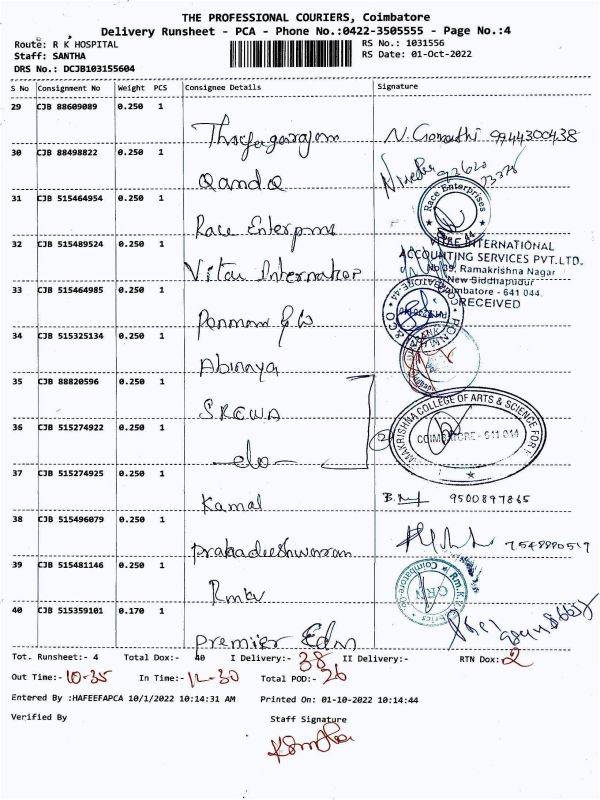 THE PROFESSIONAL COURIERS, Coimbatore
Delivery Runsheet - PCA - Phone No.:0422-3505555 - Page No.:4
Route: R K HOSPITAL
RS No.: 1031556
Staff: SANTHA
RS Date: 01-Oct-2022
DRS No.: DCJB103155604
S No Consignment No Weight PCS Consignee Details Signature
29 CJB 88609089 0.250 1
9944300438
30 CJB 88498822 0.250 1
Qanda
31 CJB 515464954 0.250 1
Race Enterprises
Race Enterprises
32 CJB 515489524 0.250 1
INTERNATIONAL
ACCOUNTING SERVICES PVT.LTD.
No 39, Ramakrishna Nagar
New Siddhapudur
Coimbatore - 641 044.
RECEIVED
33 CJB 515464985 0.250 1
34 CJB 515325134 0.250 1
Abinaya
35 CJB 88820596 0.250 1
36 CJB 515274922 0.250 1
COLLEGE OF ARTS & SCIENCE FOR
COIMBATORE
37 CJB 515274925 0.250 1
Kamal 9500897865
38 CJB 515496079 0.250 1
39 CJB 515481146 0.250 1
Rmkv
40 CJB 515359101 0.170 1
Premier Edn
Tot. Runsheet:- 4 Total Dox:- 40 I Delivery:- 38 II Delivery:- RTN Dox:- 2
Out Time:- 10-35 In Time:- 12-30 Total POD:- 26
Entered By :HAFEEFAPCA 10/1/2022 10:14:31 AM Printed On: 01-10-2022 10:14:44
Verified By Staff Signature